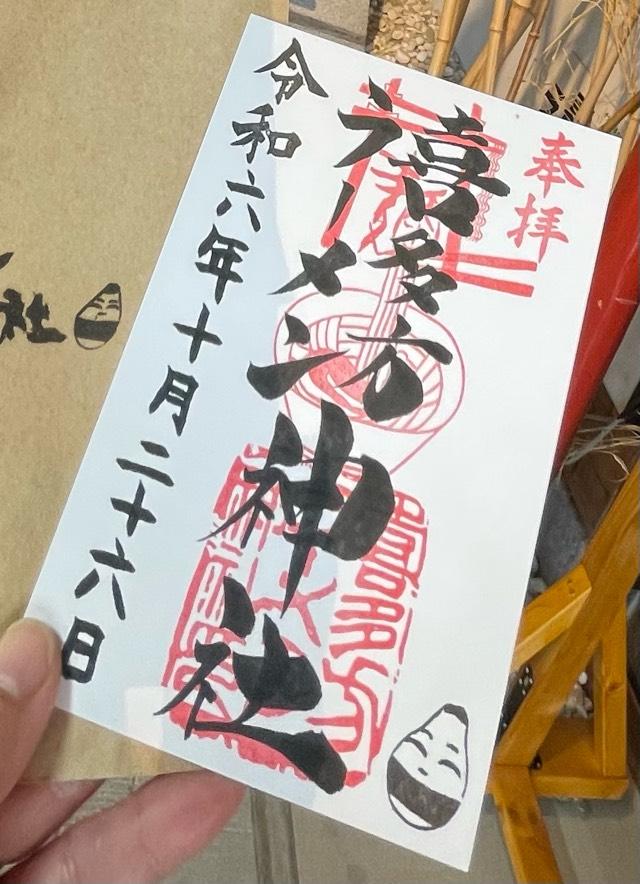 奉拝
喜多方
ラーメン
神社
令和六年十月二十六日
社